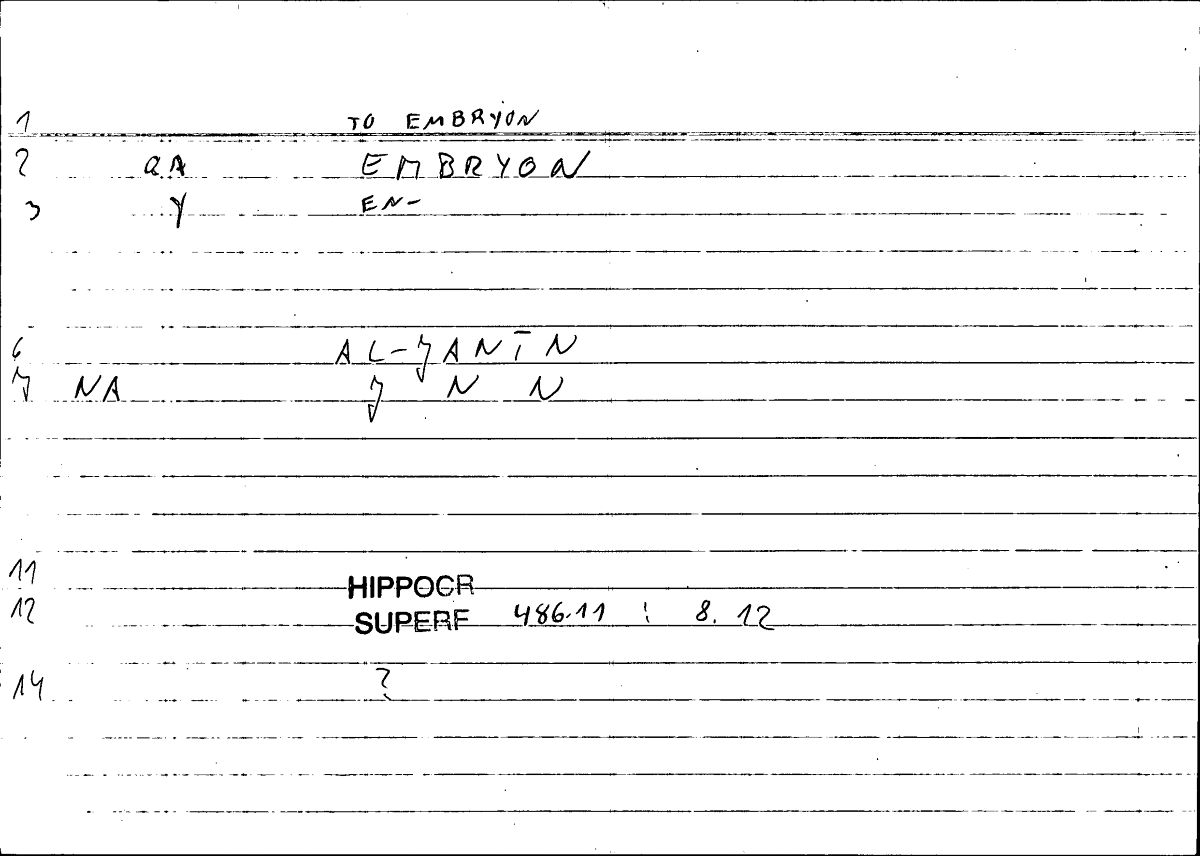 1 TO EMBRYON
2 QA EMBRYON
3 Y EN-
6 AL-ǦANĪN
7 NA Ǧ N N
11 HIPPOCR
12 SUPERF 486.11 : 8.12
14 ?